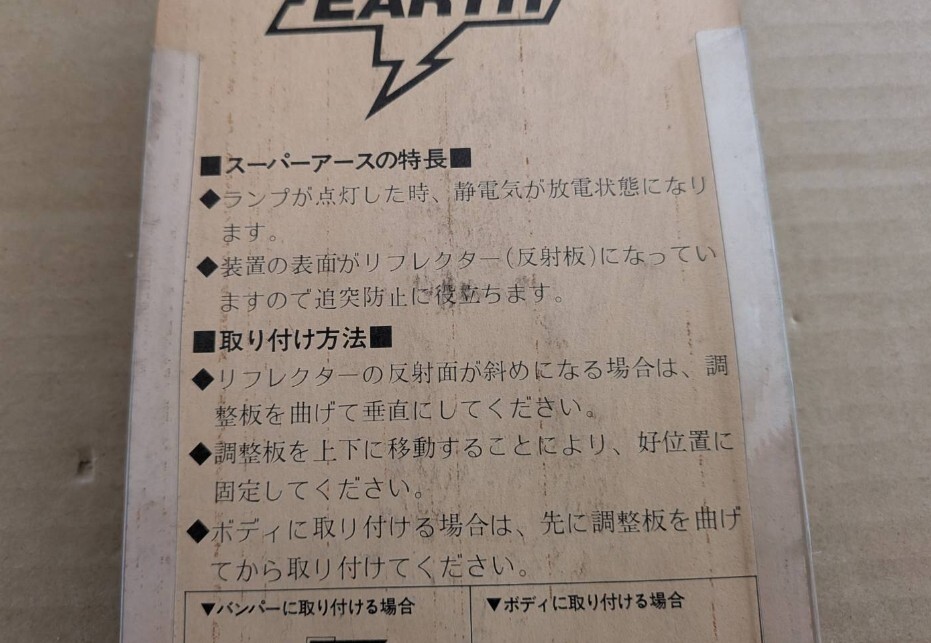 EARTH
■スーパーアースの特長■
◆ランプが点灯した時、静電気が放電状態になり
ます。
◆装置の表面がリフレクター(反射板)になってい
ますので追突防止に役立ちます。
■取り付け方法■
◆リフレクターの反射面が斜めになる場合は、調
整板を曲げて垂直にしてください。
◆調整板を上下に移動することにより、好位置に
固定してください。
◆ボディに取り付ける場合は、先に調整板を曲げ
てから取り付けてください。
▼バンパーに取り付ける場合
▼ボディに取り付ける場合